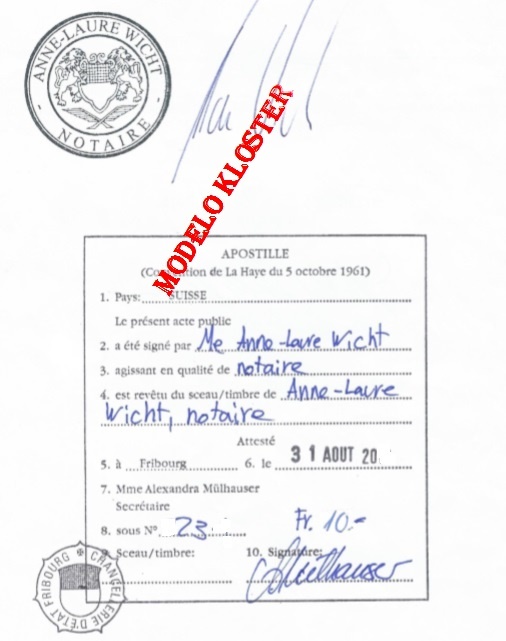 ANNE-LAURE WICHT
- NOTAIRE -
MODELO KLOSTER
APOSTILLE
(Convention de La Haye du 5 octobre 1961)
1. Pays: SUISSE
Le présent acte public
2. a été signé par Me Anne-Laure Wicht
3. agissant en qualité de notaire
4. est revêtu du sceau/timbre de Anne-Laure
Wicht, notaire
Attesté
5. à Fribourg 6. le 31 AOUT 20
7. Mme Alexandra Mülhauser
Secrétaire
Fr. 10.-
8. sous N° 23
9. Sceau/timbre: 10. Signature:
CHANCELLERIE D'ÉTAT FRIBOURG